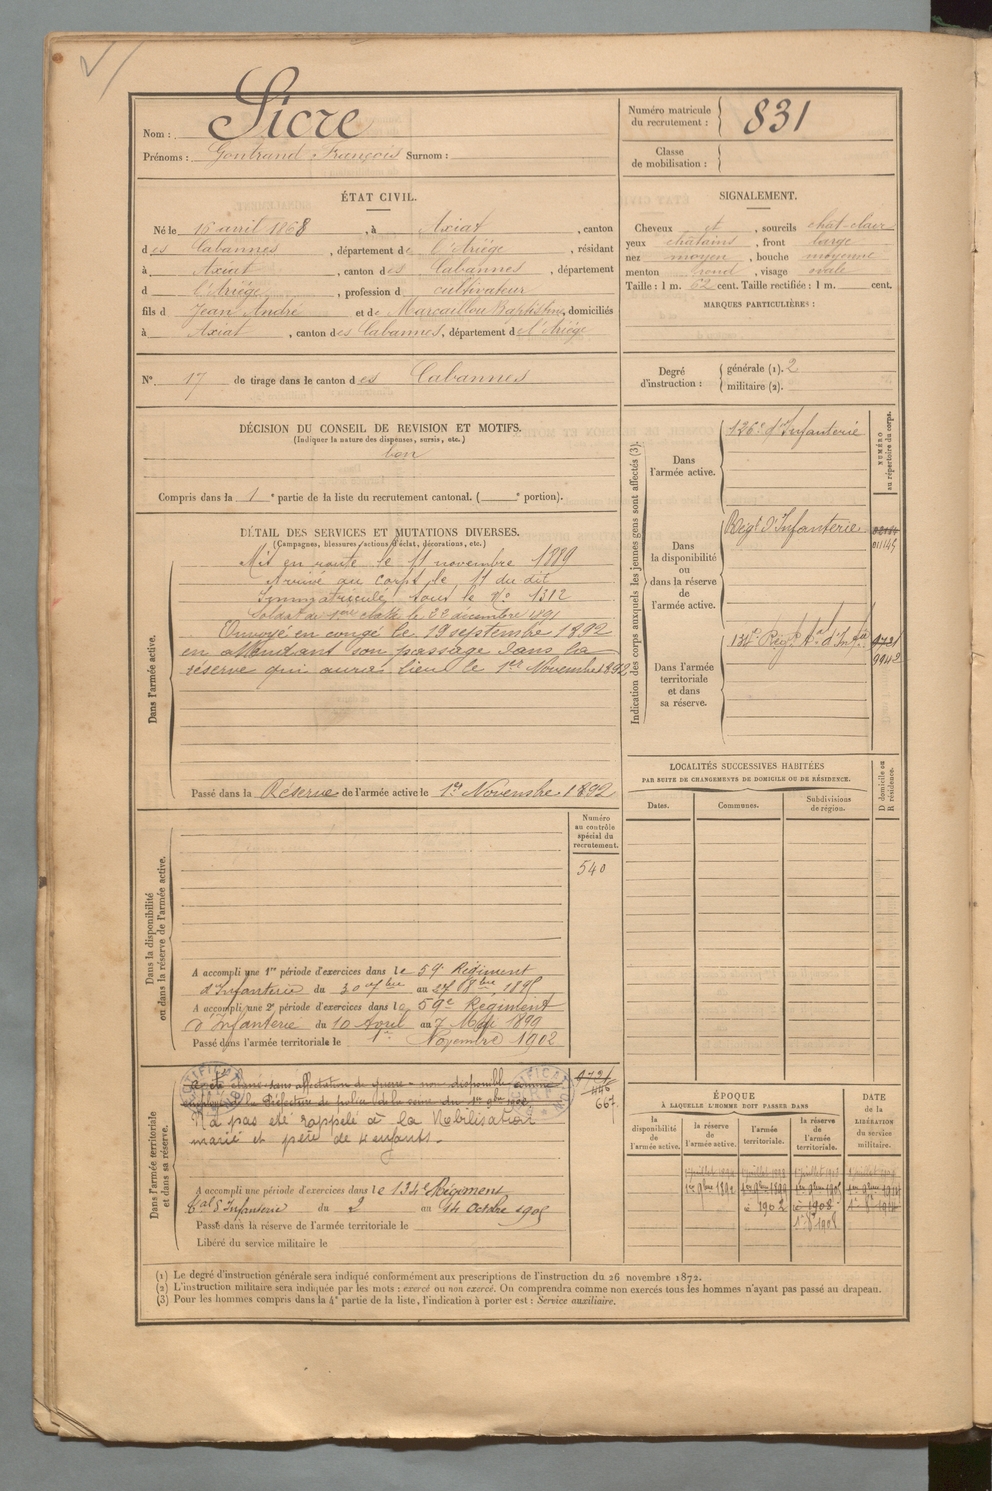 Nom : Sicre
Prénoms : Gontrand François Surnom :
Numéro matricule du recrutement : 831
Classe de mobilisation :
ÉTAT CIVIL.
Né le 16 avril 1868, à Axiat, canton
des Cabannes, département de l'Ariège, résidant
à Axiat, canton des Cabannes, département
d l'Ariège, profession d cultivateur
fils d Jean André et de Marcaillou Baptistine, domiciliés
à Axiat, canton des Cabannes, département de l'Ariège
SIGNALEMENT.
Cheveux et, sourcils chat-clair
yeux châtains, front large
nez moyen, bouche moyenne
menton rond, visage ovale
Taille : 1 m. 62 cent. Taille rectifiée : 1 m. cent.
MARQUES PARTICULIÈRES :
N° 17 de tirage dans le canton des Cabannes
Degré d'instruction : générale (1). 2
militaire (2).
DÉCISION DU CONSEIL DE REVISION ET MOTIFS.
(Indiquer la nature des dispenses, sursis, etc.)
bon
Compris dans la 1e partie de la liste du recrutement cantonal. ( e portion).
DÉTAIL DES SERVICES ET MUTATIONS DIVERSES.
(Campagnes, blessures, actions d'éclat, décorations, etc.)
Dans l'armée active.
Mis en route le 11 novembre 1889
Arrivé au corps le 11 du dit
Immatriculé sous le N° 1312
Soldat de 1ère classe le 22 décembre 1891
Envoyé en congé le 19 septembre 1892
en attendant son passage dans la
réserve qui aura lieu le 1er Novembre 1892
Passé dans la Réserve de l'armée active le 1er Novembre 1892
Indication des corps auxquels les jeunes gens sont affectés (3).
NUMÉRO au répertoire du corps.
Dans l'armée active.
126e d'Infanterie
Dans la disponibilité ou dans la réserve de l'armée active.
Régt d'Infanterie
01145
Dans l'armée territoriale et dans sa réserve.
134e Régt tal d'Infie
972
9942
LOCALITÉS SUCCESSIVES HABITÉES
PAR SUITE DE CHANGEMENTS DE DOMICILE OU DE RÉSIDENCE.
Dates.
Communes.
Subdivisions de région.
D domicile ou R résidence.
Dans la disponibilité ou dans la réserve de l'armée active.
Numéro au contrôle spécial du recrutement.
540
A accompli une 1re période d'exercices dans le 59e Régiment
d'Infanterie du 30 7bre au 27 8bre 1895
A accompli une 2e période d'exercices dans le 59e Régiment
d'Infanterie du 10 Avril au 7 Mai 1899
Passé dans l'armée territoriale le 1er Novembre 1902
Dans l'armée territoriale et dans sa réserve.
A été classé sans affectation de guerre - non disponible comme
employé à la Préfecture de police de la Seine du 1er
N'a pas été rappelé à la Mobilisation
marié et père de 4 enfants.
667
A accompli une période d'exercices dans le 134e Régiment
tal d'Infanterie du 2 au 14 Octobre 1905
Passé dans la réserve de l'armée territoriale le
Libéré du service militaire le
ÉPOQUE
À LAQUELLE L'HOMME DOIT PASSER DANS
la disponibilité de l'armée active.
la réserve de l'armée active.
l'armée territoriale.
la réserve de l'armée territoriale.
DATE de la LIBÉRATION du service militaire.
1er 9bre 1892
1er 9bre 1899
à 1902
à 1908
(1) Le degré d'instruction générale sera indiqué conformément aux prescriptions de l'instruction du 26 novembre 1872.
(2) L'instruction militaire sera indiquée par les mots : exercé ou non exercé. On comprendra comme non exercés tous les hommes n'ayant pas passé au drapeau.
(3) Pour les hommes compris dans la 4e partie de la liste, l'indication à porter est : Service auxiliaire.